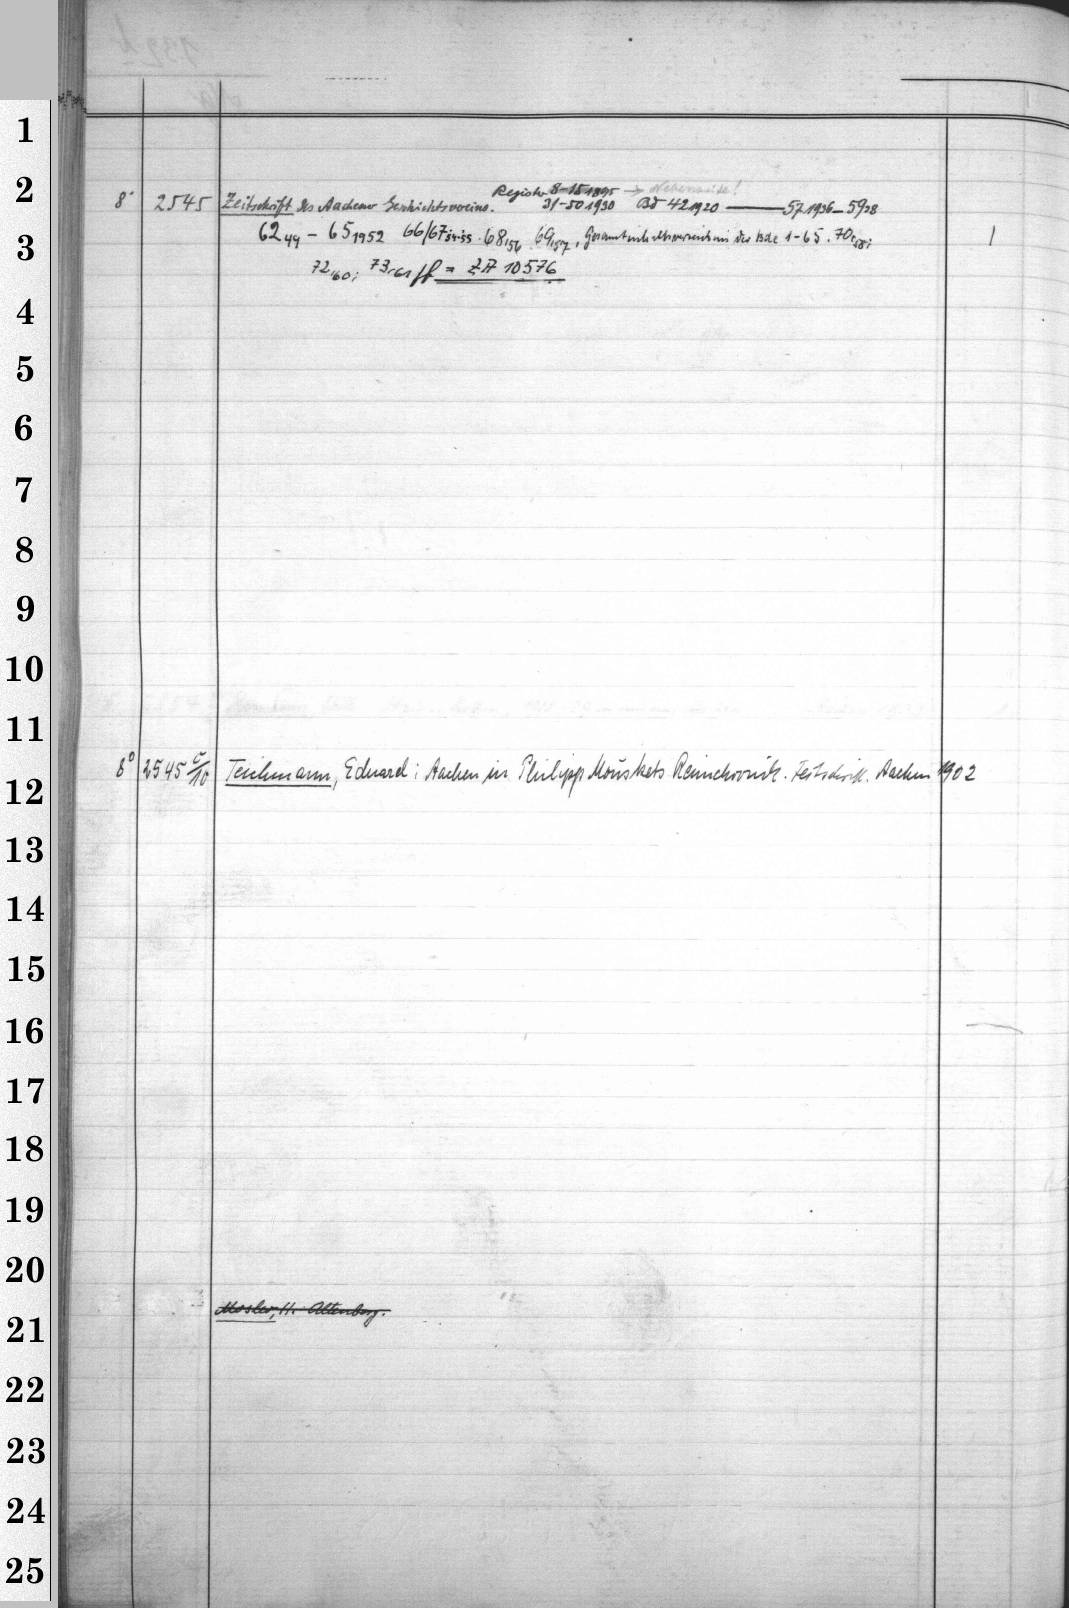 1
2
Register 8-15 1895 → Nebenseite!
8° 2545 Zeitschrift des Aachener Geschichtsvereins. 31-50 1930 Bd 42 1920 — 57 1936 - 59 38
3
62 49 - 65 1952 66/67 54-55. 68, 56 69, 57, Gesamtinhaltsverzeichnis der Bde 1-65. 70, 58; 1
72, 60; 73, 61 ff = ZA 10576
4
5
6
7
8
9
10
11
8° 2545 c/10 Teichmann, Eduard: Aachen in Philipp Mouskets Reimchronik. Festschrift. Aachen 1902
12
13
14
15
16
17
18
19
20
Mosler, H. Altenberg.
21
22
23
24
25